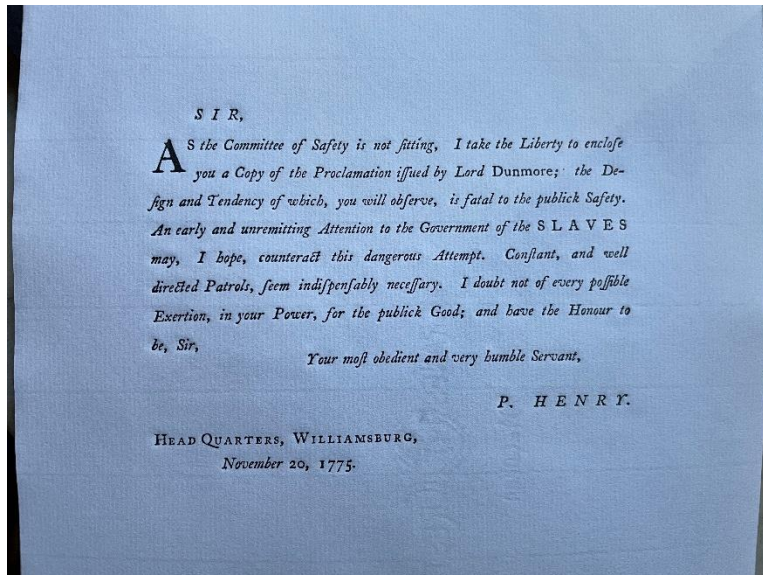 SIR,
AS the Committee of Safety is not ſitting, I take the Liberty to encloſe
you a Copy of the Proclamation iſſued by Lord Dunmore; the De-
ſign and Tendency of which, you will obſerve, is fatal to the publick Safety.
An early and unremitting Attention to the Government of the SLAVES
may, I hope, counteract this dangerous Attempt. Conſtant, and well
directed Patrols, ſeem indiſpenſably neceſſary. I doubt not of every poſſible
Exertion, in your Power, for the publick Good; and have the Honour to
be, Sir,
Your moſt obedient and very humble Servant,
P. HENRY.
HEAD QUARTERS, WILLIAMSBURG,
November 20, 1775.